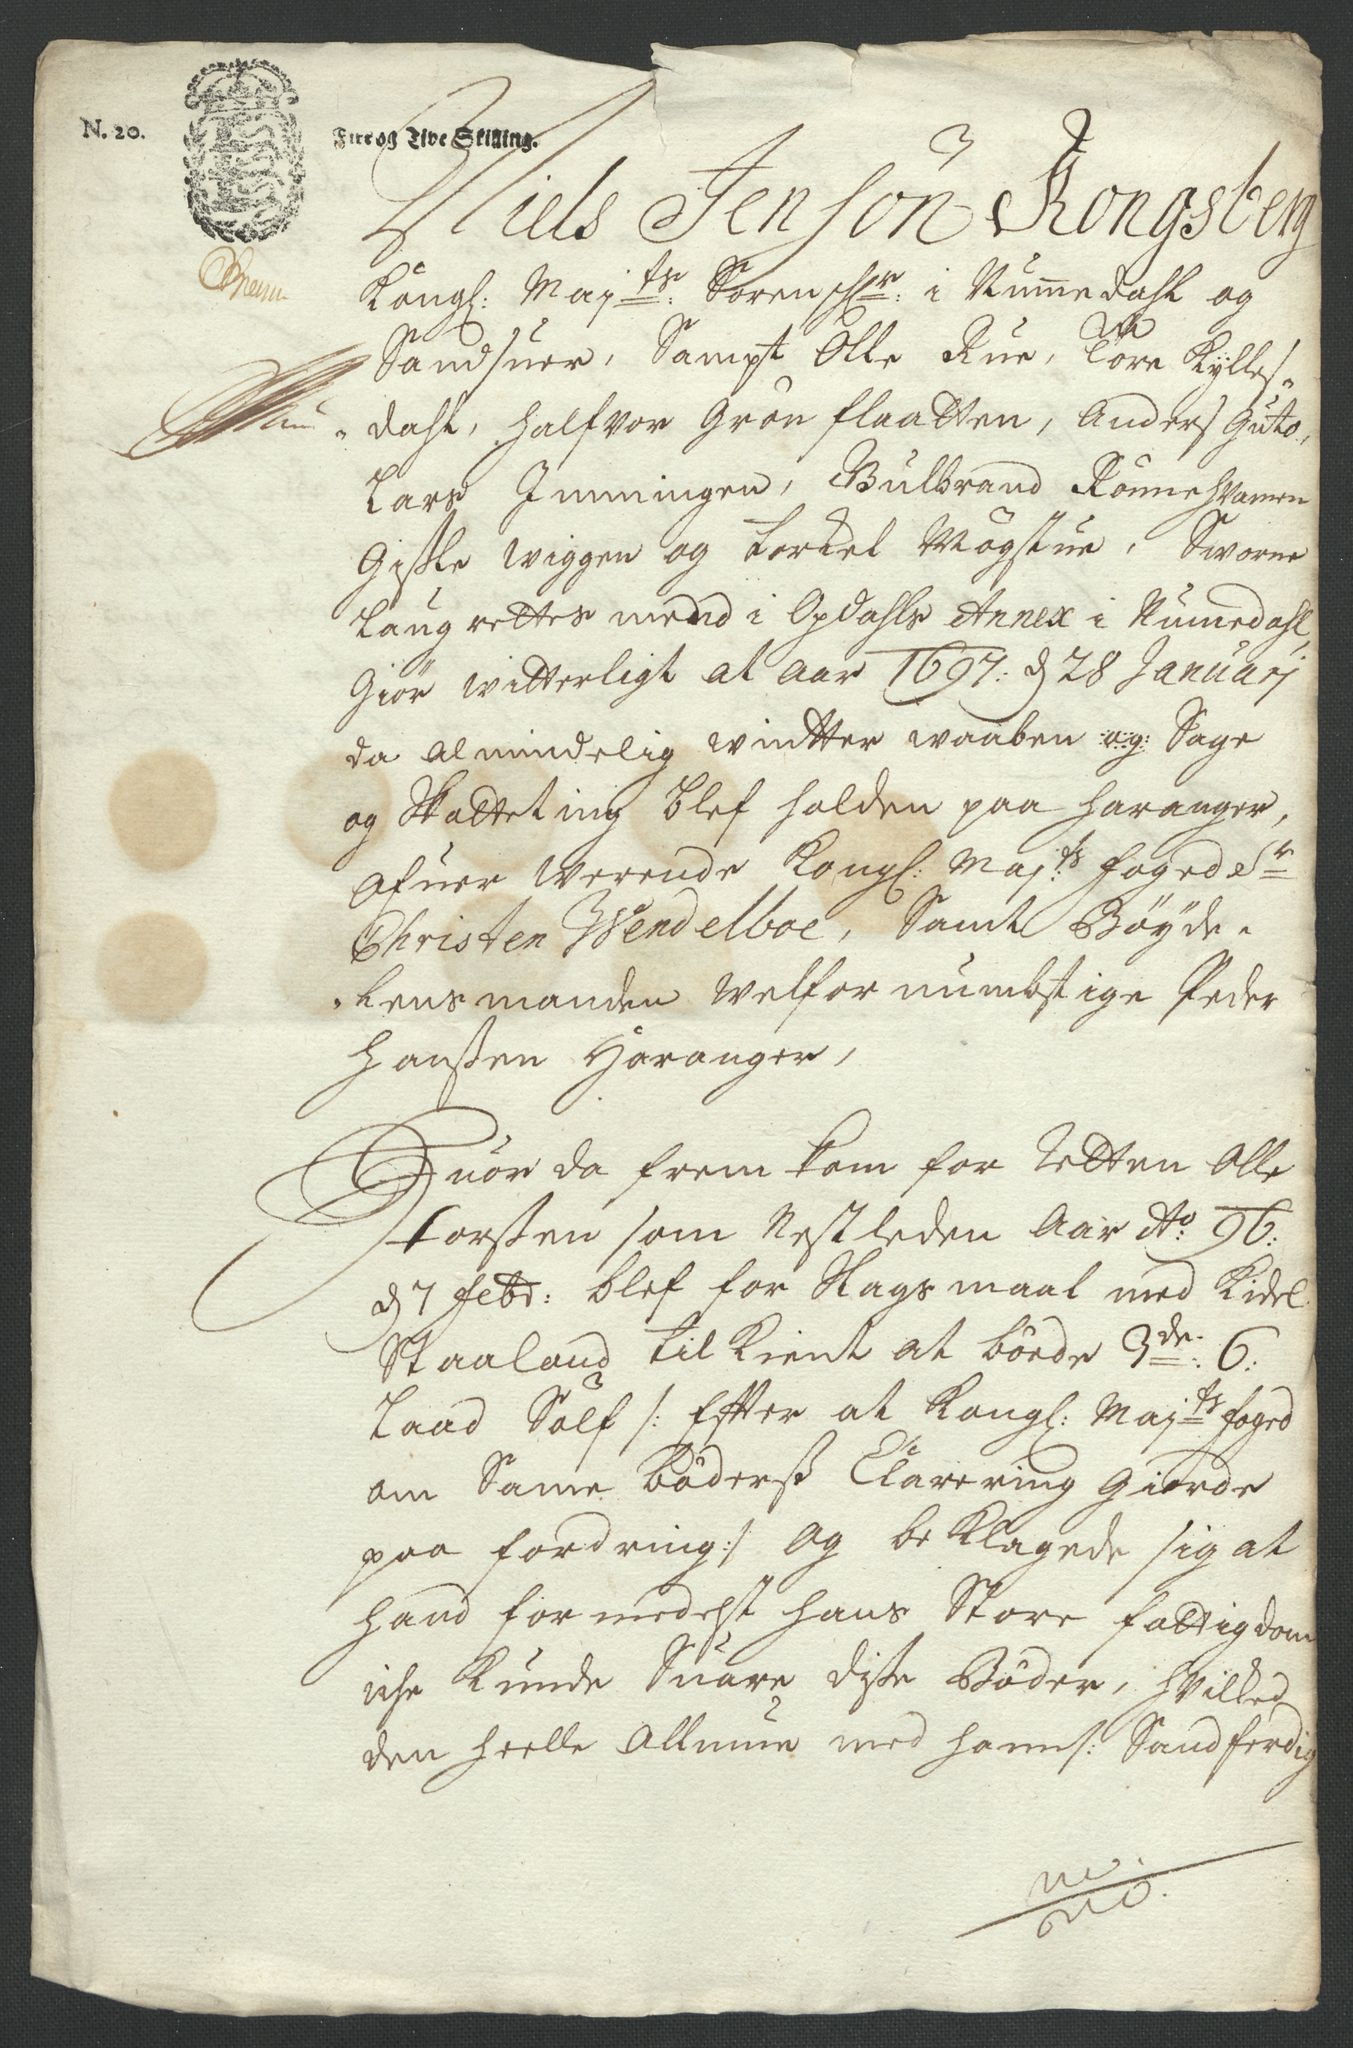 N. 20.
Fire og Tive Skilling.
Niels Jensøn Kongsberg
Kongl: Maj:ts: Sorenschr: i Nummedahl og
Sandsuer, Sampt Olle Rue, Tore Kylles-
-dahl, Halfvor Grønflaatten, Anders Guto,
Lars Immingen, Gulbrand Rønnehvamen
Gisle Wiggen og Torkel Møgstue, Sworne
Laugrettes mend i Opdahls Annex i Numedahl,
Giør witterligt at Aar 1697: d 28 Januarj
da Almindelig wintter waaben og Sage
og Skatteting blef holden paa Haranger,
Ofuer werende Kongl: Maj:ts foged Sr
Christen Wendelboe, Samt Bøyde-
-Lensmanden Welfornumbstige Peder
Hanssen Haranger,
Huor da frem kom for Retten Olle
Torssen som Nestleden Aar Ao 96:
d 7 Febr: blef for Slagsmaal med Kidel
Staaland til kient at bøede 3de: 6:
Laad Sølf /: Effter at Kongl: Maj:ts foged
om Same bøderss Clarering Giorde
paa fordring :/ Og beklagede sig at
hand formedelst hans Store fattigdom
iche kunde Suare disse Bøder, hvilked
den heelle Allmue med ham /: Sandferdig